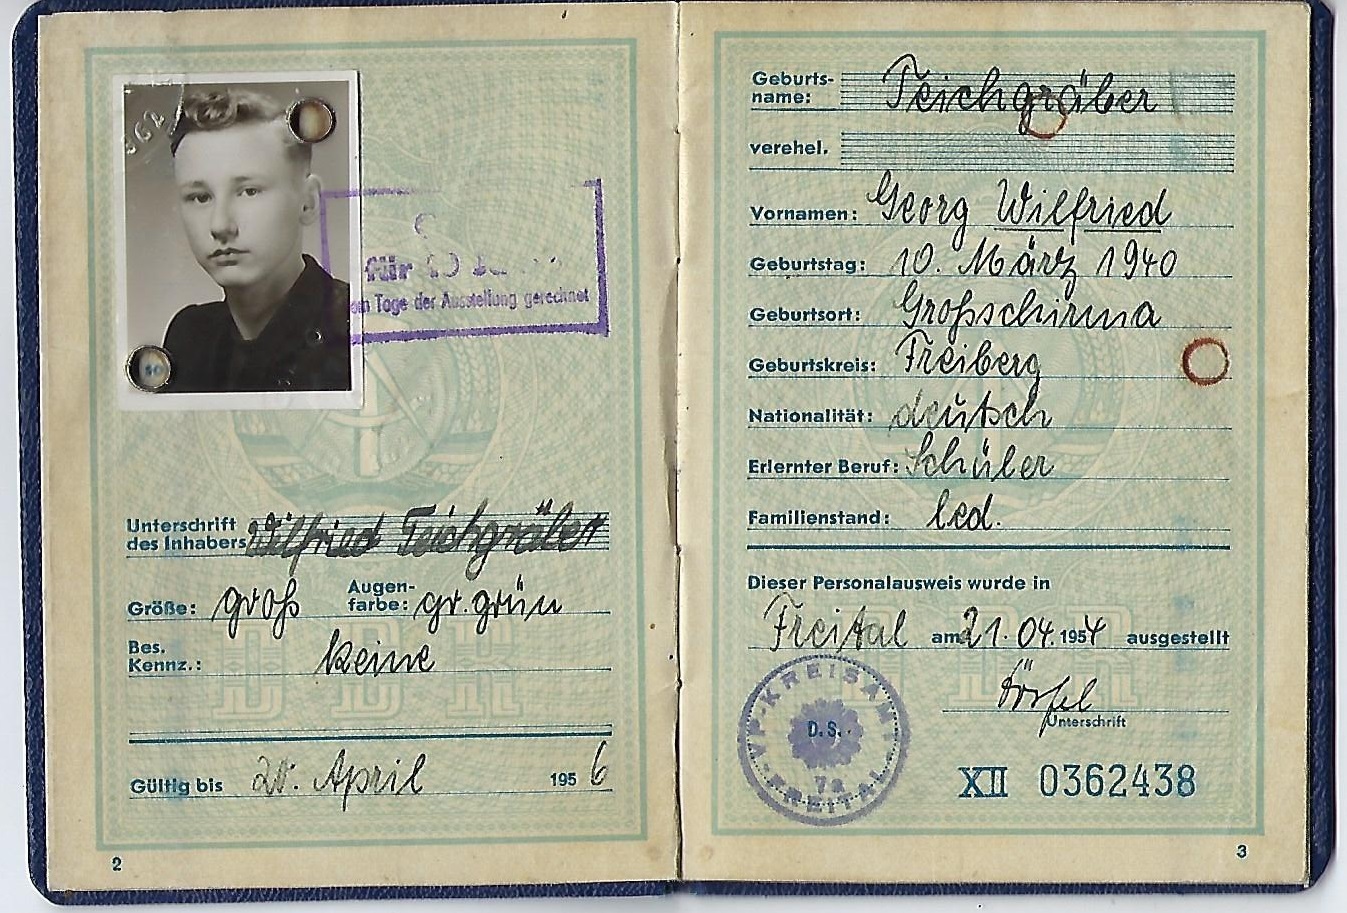 für
Tage der Ausstellung gerechnet
Unterschrift
des Inhabers Wilfried Teichgräber
Größe: groß Augen-
farbe: gr. grün
Bes.
Kennz.: keine
DDR
Gültig bis 20. April 1956
2
Geburts-
name: Teichgräber
verehel.
Vornamen: Georg Wilfried
Geburtstag: 10. März 1940
Geburtsort: Großschirma
Geburtskreis: Freiberg
Nationalität: deutsch
Erlernter Beruf: Schüler
Familienstand: led.
Dieser Personalausweis wurde in
Freital am 21.04.1954 ausgestellt
Unterschrift
DDR
VP-KREISAMT
D.S.
FREITAL
XII 0362438
3